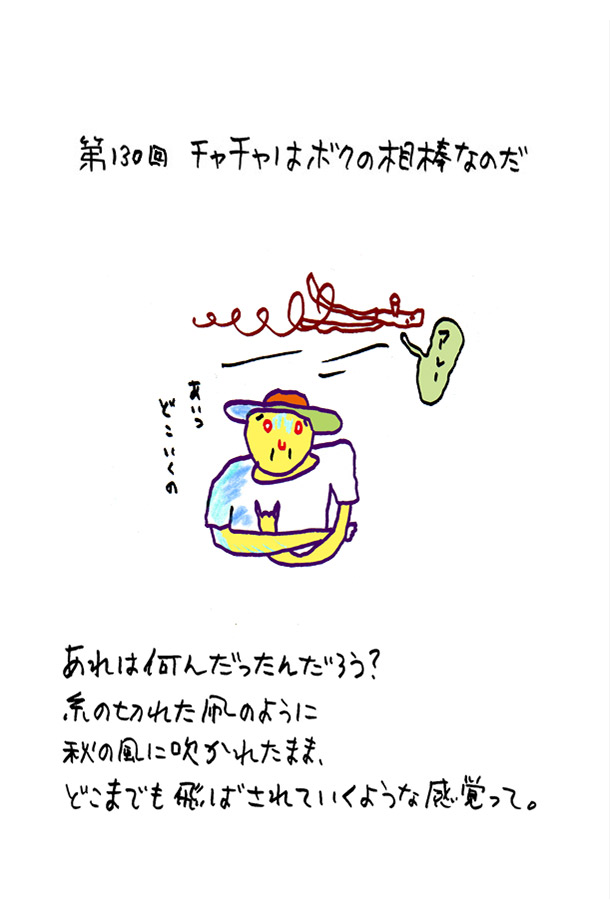 第130回 チャチャはボクの相棒なのだ
アレー
あいつ
どこいくの
あれは何んだったんだろう?
糸の切れた凧のように
秋の風に吹かれたまま、
どこまでも飛ばされていくような感覚って。